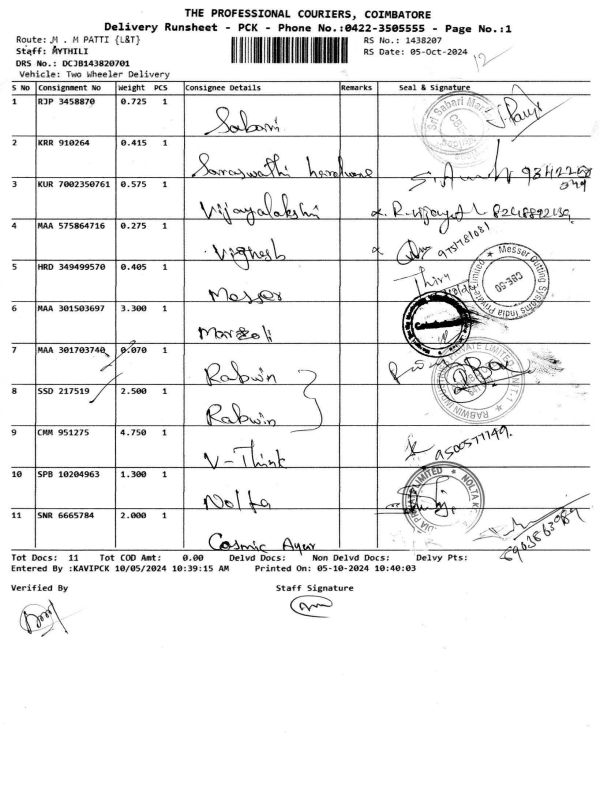 THE PROFESSIONAL COURIERS, COIMBATORE
Delivery Runsheet - PCK - Phone No.:0422-3505555 - Page No.:1
Route: M . M PATTI {L&T} RS No.: 1438207
Staff: AYTHILI RS Date: 05-Oct-2024 12
DRS No.: DCJB143820701
Vehicle: Two Wheeler Delivery
S No Consignment No Weight PCS Consignee Details Remarks Seal & Signature
1 RJP 3458870 0.725 1 Sabari Sri Sabari
2 KRR 910264 0.415 1 Saraswathi hardware
3 KUR 7002350761 0.575 1 Vijayalakshi
4 MAA 575864716 0.275 1 Vighesh 9751781081
5 HRD 349499570 0.405 1 Messer Messer Cutting Systems India Private Limited
6 MAA 301503697 3.300 1
7 MAA 301703740 0.070 1 Rabwin
8 SSD 217519 2.500 1 Rabwin
9 CMM 951275 4.750 1 V-Think 9500577149.
10 SPB 10204963 1.300 1 Nolta
11 SNR 6665784 2.000 1 Cosmic Ayur
Tot Docs: 11 Tot COD Amt: 0.00 Delvd Docs: Non Delvd Docs: Delvy Pts:
Entered By :KAVIPCK 10/05/2024 10:39:15 AM Printed On: 05-10-2024 10:40:03
Verified By Staff Signature